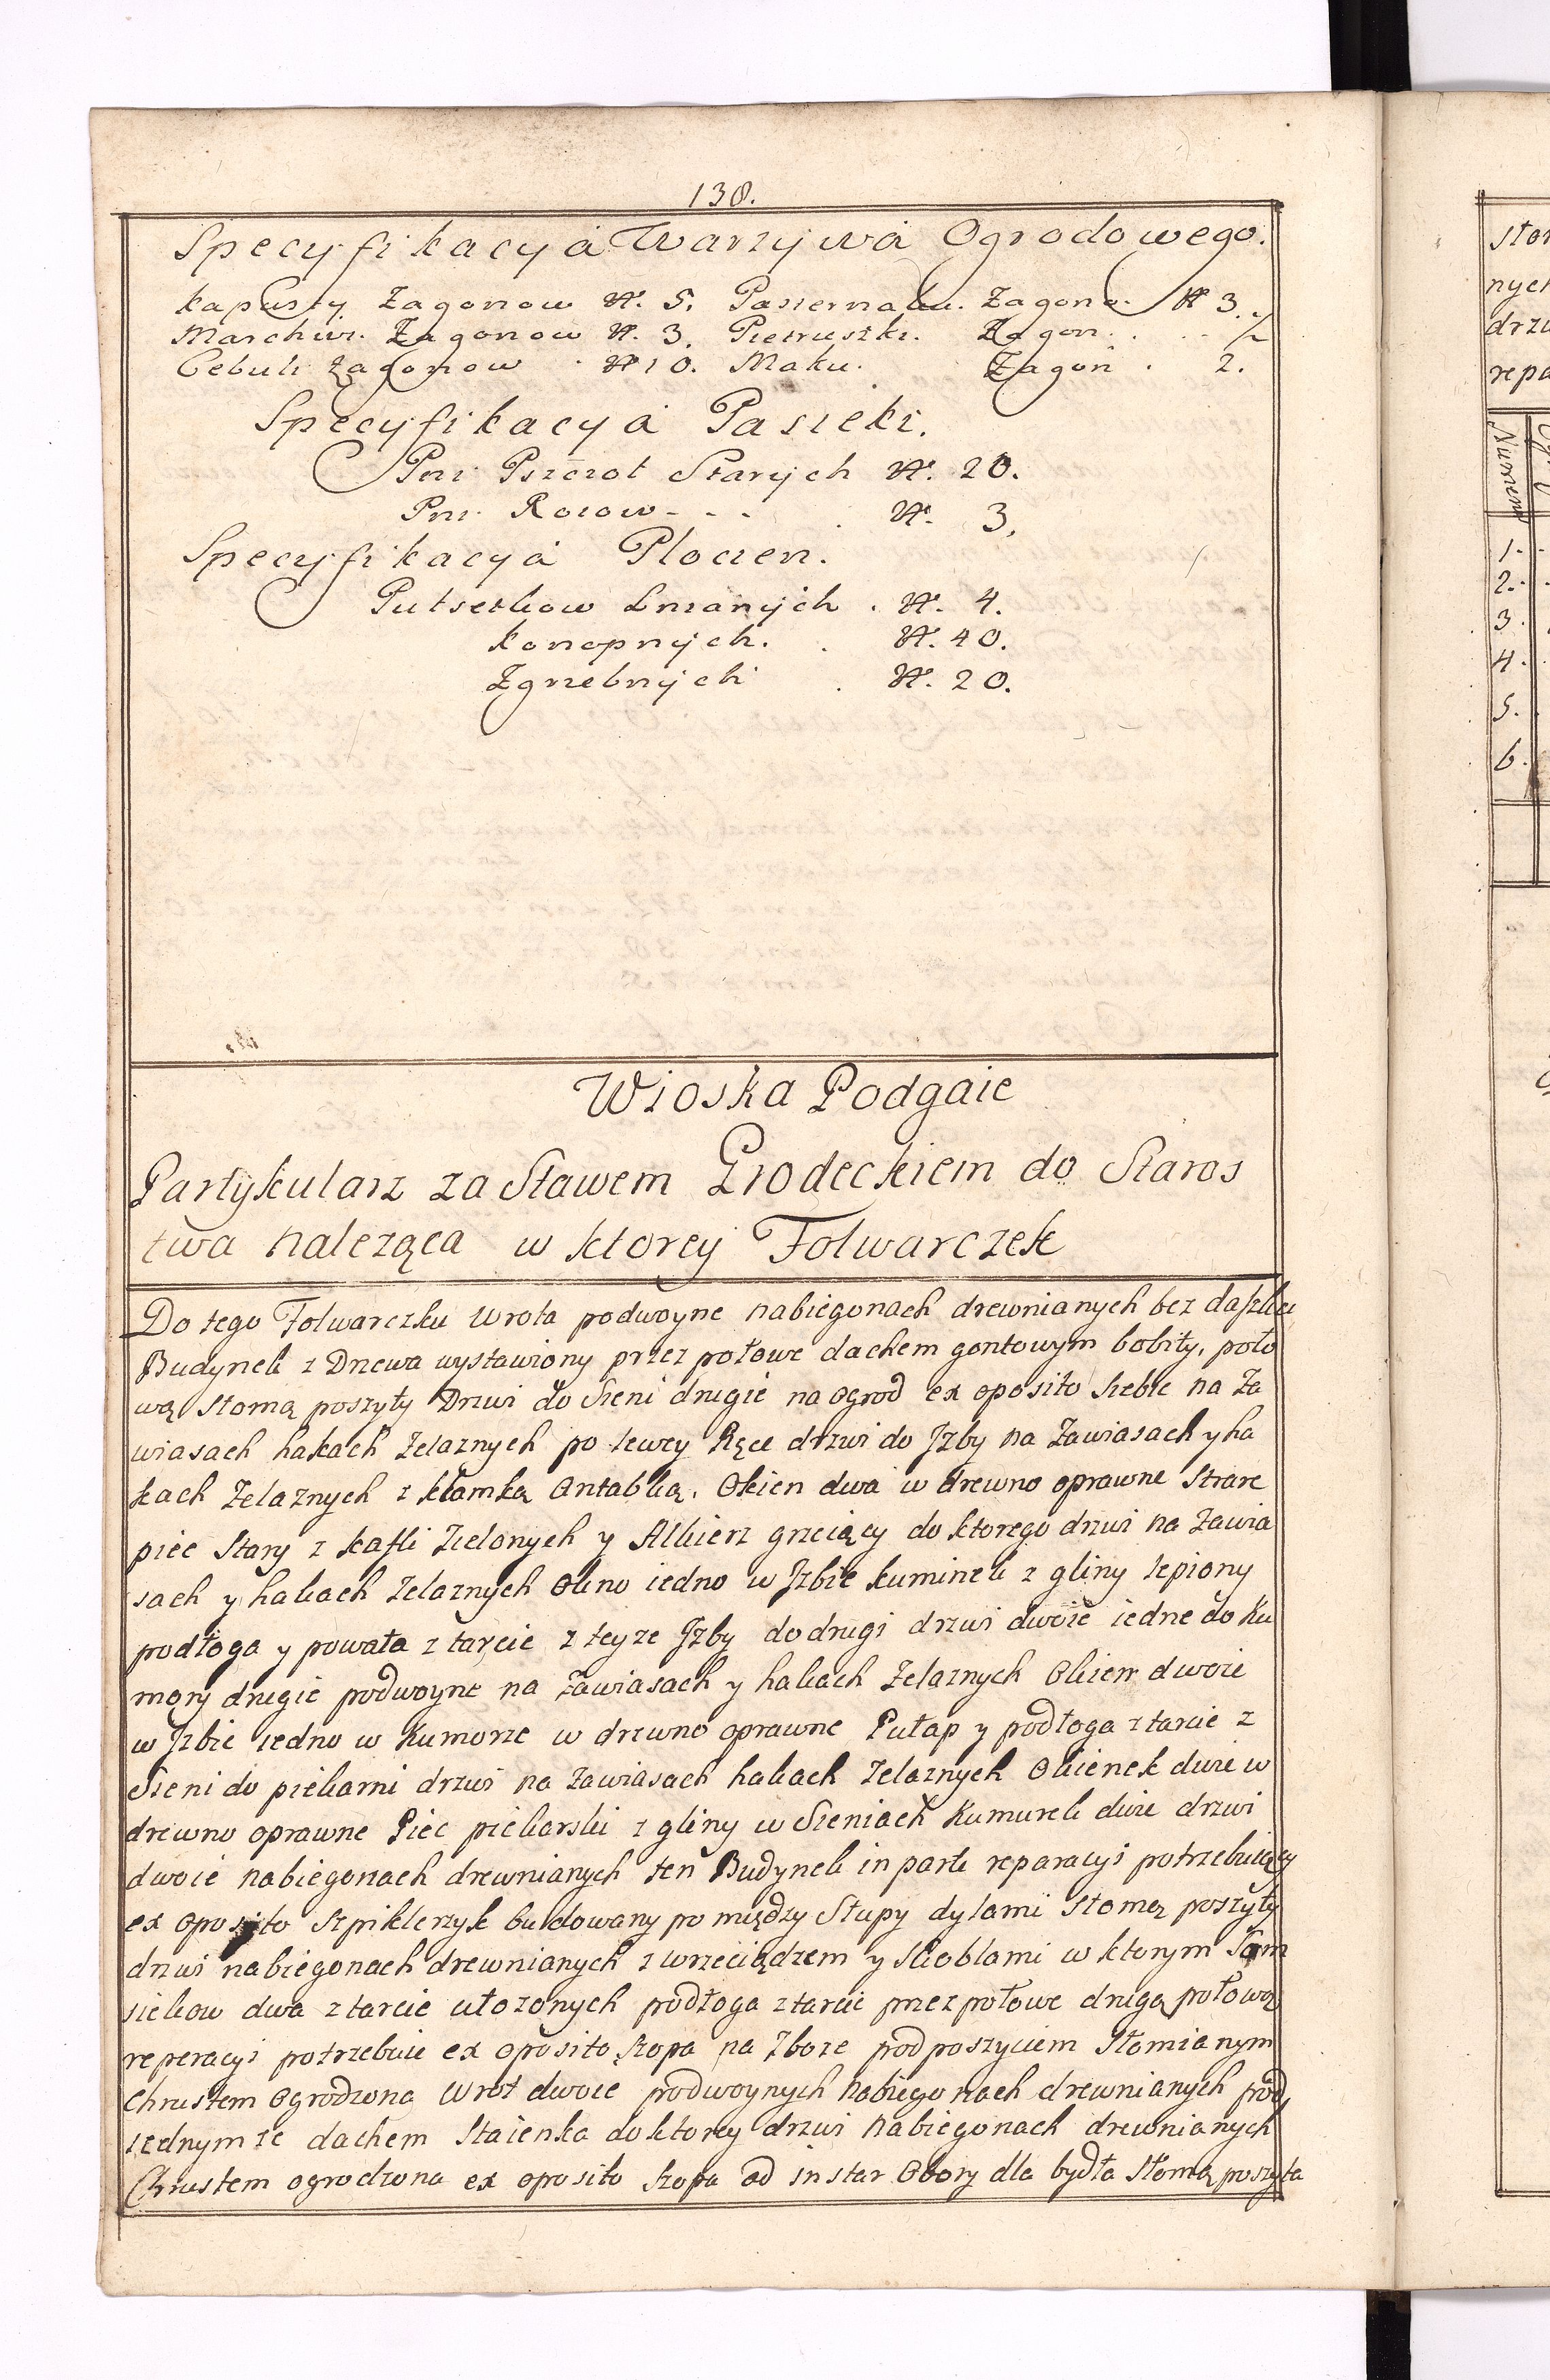 138.
Specyfikacya Warzywa Ogrodowego.
Kapusty Zagonow N. 5. Pasternaku. Zagona. N 3.
Marchwi. Zagonow N. 3. Pietruszki. Zagon . . . ½
Cebuli Zagonow . N 10. Maku. Zagon . 2.
Specyfikacya Pasieki.
Pni Pszczoł Starych N. 20.
Pni Roiow - - - . N. 3.
Specyfikacya Płocien.
Pułsetkow Lnianych . N. 4.
Konopnych. . N. 40.
Zgrzebnych . N. 20.
Wioska Podgaie
Partykularz za Stawem Grodeckiem do Staros
twa naleząca w ktorey Folwarczek
Do tego Folwarczku Wrota podwoyne nabiegonach drewnianych bez daszku
Budynek z Drzewa wystawiony przez połowe dachem gontowym bobity, poło
wą Słomą poszyty Drzwi do Sieni drugie na Ogrod ex oposito Siebie na Za
wiasach hakach Zelaznych po lewey Ręce drzwi do Jzby na Zawiasach y ha
kach Zelaznych z klamką Antabką. Okien dwa w drewno oprawne Stare
piec Stary z kafli Zielonych y Alkierz grzeiący do ktorego drzwi na Zawia
sach y hakach Zelaznych Okno iedno w Jzbie kuminek z gliny lepiony
podłoga y powała z tarcic z teyze Jzby do drugi drzwi dwoie iedne do Ku
mory drugie podwoyne na Zawiasach y hakach Zelaznych Okien dwoie
w Jzbie iedno w Kumorze w drzewno oprawne Pułap y podłoga z tarcic z
Sieni do piekarni drzwi na Zawiasach hakach Zelaznych Okienek dwie w
drewno oprawne Piec piekarski z gliny w Sieniach Kumurek dwie drzwi
dwoie nabiegonach drewnianych ten Budynek in parte reparacyi potrzebuiący
ex oposito Szpiklerzyk budowany pomiędzy Słupy dylami Słomą poszyty
drzwi nabiegonach drewnianych z wrzeciądzem y Skoblami w ktorym Sam
siekow dwa z tarcic ułozonych podłoga z tarcic przez połowe drugą połową
reperacyi potrzebuie ex oposito Szopa na Zboze pod poszyciem Słomianym
Chrustem Ogrodzona Wrot dwoie podwoynych nabiegonach drewnianych pod
iednym ze dachem Staienka do ktorey drzwi nabiegonach drewnianych
Chrustem ogrodzona ex oposito Szopa ad instar Obory dla bydła Słomą poszyta